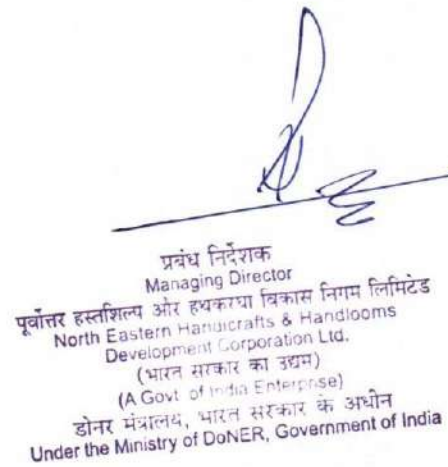 प्रबंध निर्देशक
Managing Director
पूर्वोत्तर हस्तशिल्प और हथकरघा विकास निगम लिमिटेड
North Eastern Handicrafts & Handlooms
Development Corporation Ltd.
(भारत सरकार का उद्यम)
(A Govt. of India Enterprise)
डोनर मंत्रालय, भारत सरकार के अधीन
Under the Ministry of DoNER, Government of India